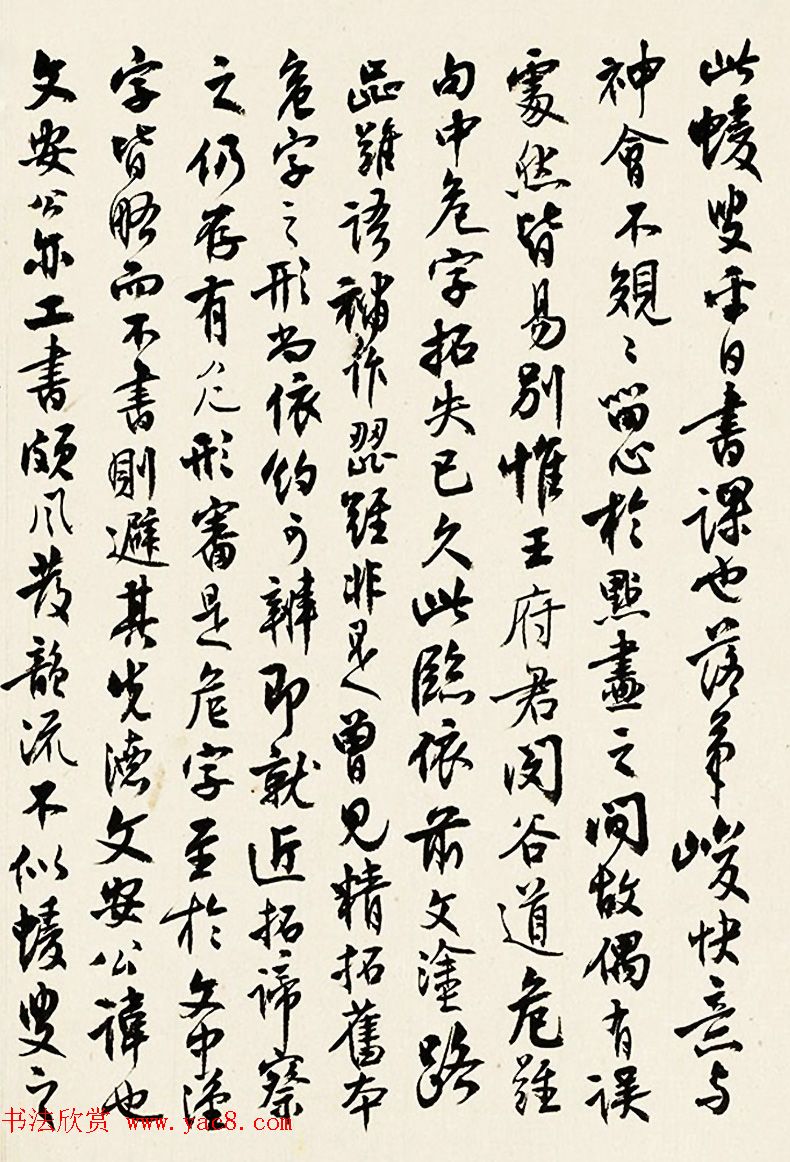 此蝯叟平日書課也落筆峻快意与
神會不規〻留心於點畫之間故偶有误
處然皆易別惟王府君閔谷道危難
句中危字拓失已久此臨依前文塗路
歰難語補作歰難非是曾見精拓舊本
危字之形尚依約可辨即就近拓諦察
之仍存有形審是危字至於文中漢
字皆略而不書則避其先德文安公諱也
文安公亦工書頗風發韻流不似蝯叟之
书法欣赏 www.yac8.com